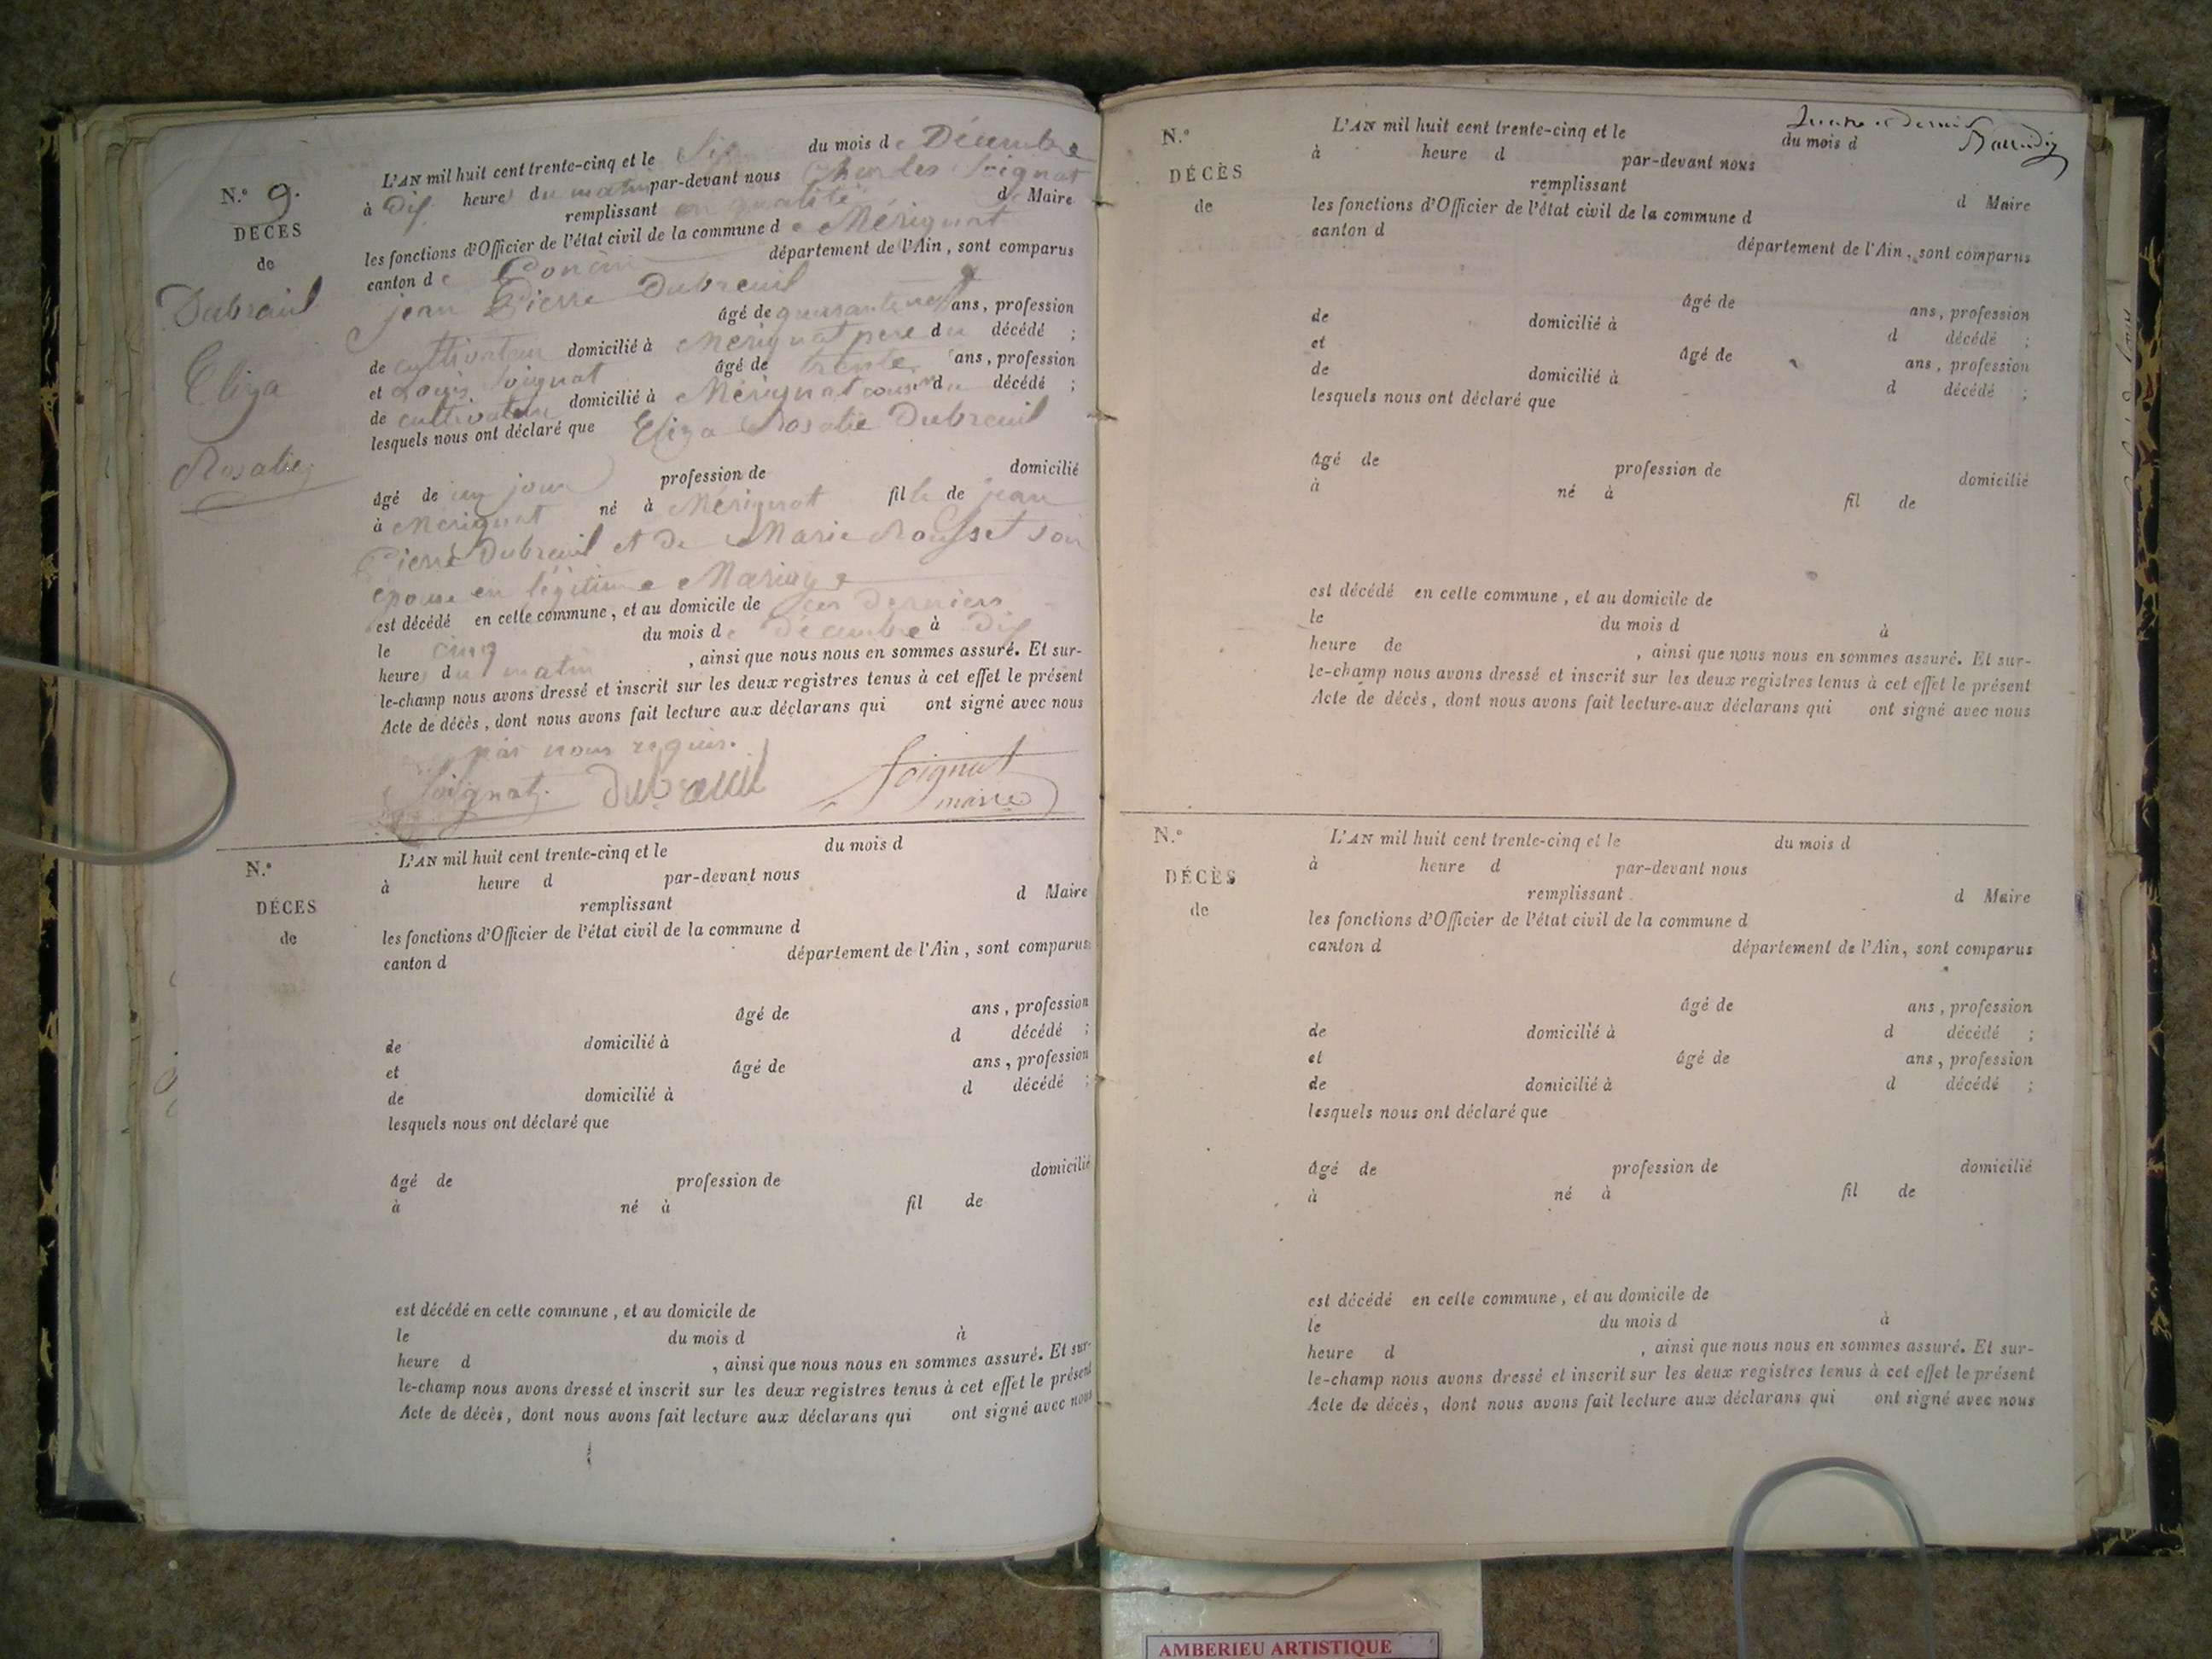 N.° 9.
DÉCES
de
Dubreuil
Eliza
Rosalie
L'AN mil huit cent trente-cinq et le Six du mois de Décembre
à Dix heures du matin par-devant nous Charles Soignat
remplissant en qualité d Maire
les fonctions d'Officier de l'état civil de la commune de Mérignat
canton de Poncin département de l'Ain, sont comparus
jean Pierre Dubreuil
âgé de quarante neuf ans, profession
de cultivateur domicilié à Mérignat pere du décédé ;
et Louis Soignat âgé de trente ans, profession
de cultivateur domicilié à Mérignat cousin du décédé ;
lesquels nous ont déclaré que Eliza Rosalie Dubreuil
âgé de un jour profession de domicilié
à Mérignat né à Mérignat fille de jean
Pierre Dubreuil et de Marie Rousset son
épouse en légitime Mariage
est décédé en celle commune, et au domicile de ces derniers
le cinq du mois de Décembre à Dix
heures du matin, ainsi que nous nous en sommes assuré. Et sur-
le-champ nous avons dressé et inscrit sur les deux registres tenus à cet effet le présent
Acte de décès, dont nous avons fait lecture aux déclarans qui ont signé avec nous
par nous requis.
Soignat dubreuil Soignat
maire
N.°
DÉCES
de
L'AN mil huit cent trente-cinq et le du mois d
à heure d par-devant nous
remplissant d Maire
les fonctions d'Officier de l'état civil de la commune d
canton d département de l'Ain, sont comparus
âgé de ans, profession
de domicilié à d décédé ;
et âgé de ans, profession
de domicilié à d décédé ;
lesquels nous ont déclaré que
âgé de profession de domicilié
à né à fil de
est décédé en celle commune, et au domicile de
le du mois d à
heure d , ainsi que nous nous en sommes assuré. Et sur-
le-champ nous avons dressé et inscrit sur les deux registres tenus à cet effet le présent
Acte de décès, dont nous avons fait lecture aux déclarans qui ont signé avec nous
N.°
DÉCÈS
de
L'AN mil huit cent trente-cinq et le du mois d
à heure d par-devant nous
remplissant d Maire
les fonctions d'Officier de l'état civil de la commune d
canton d département de l'Ain, sont comparus
âgé de ans, profession
de domicilié à d décédé ;
et âgé de ans, profession
de domicilié à d décédé ;
lesquels nous ont déclaré que
âgé de profession de domicilié
à né à fil de
est décédé en celle commune, et au domicile de
le du mois d à
heure de , ainsi que nous nous en sommes assuré. Et sur-
le-champ nous avons dressé et inscrit sur les deux registres tenus à cet effet le présent
Acte de décès, dont nous avons fait lecture aux déclarans qui ont signé avec nous
N.°
DÉCÈS
de
L'AN mil huit cent trente-cinq et le du mois d
à heure d par-devant nous
remplissant d Maire
les fonctions d'Officier de l'état civil de la commune d
canton d département de l'Ain, sont comparus
âgé de ans, profession
de domicilié à d décédé ;
et âgé de ans, profession
de domicilié à d décédé ;
lesquels nous ont déclaré que
âgé de profession de domicilié
à né à fil de
est décédé en celle commune, et au domicile de
le du mois d à
heure d , ainsi que nous nous en sommes assuré. Et sur-
le-champ nous avons dressé et inscrit sur les deux registres tenus à cet effet le présent
Acte de décès, dont nous avons fait lecture aux déclarans qui ont signé avec nous
AMBERIEU ARTISTIQUE